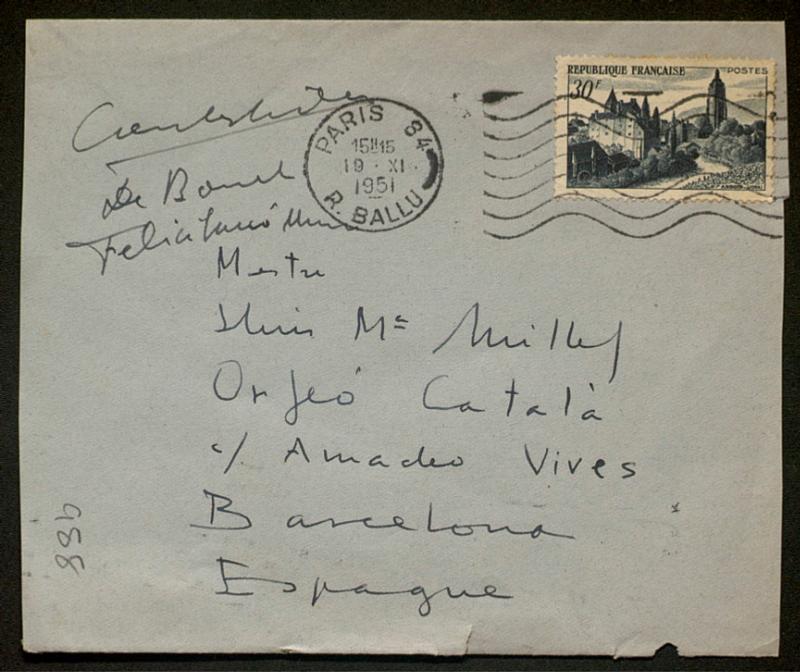 REPUBLIQUE FRANÇAISE POSTES
30F
PARIS 84
15H15
19 · XI
1951
R. BALLU
De Bonet
Mestre
Lluis Mª Millet
Orfeó Català
c/ Amadeo Vives
Barcelona
Espagne
988